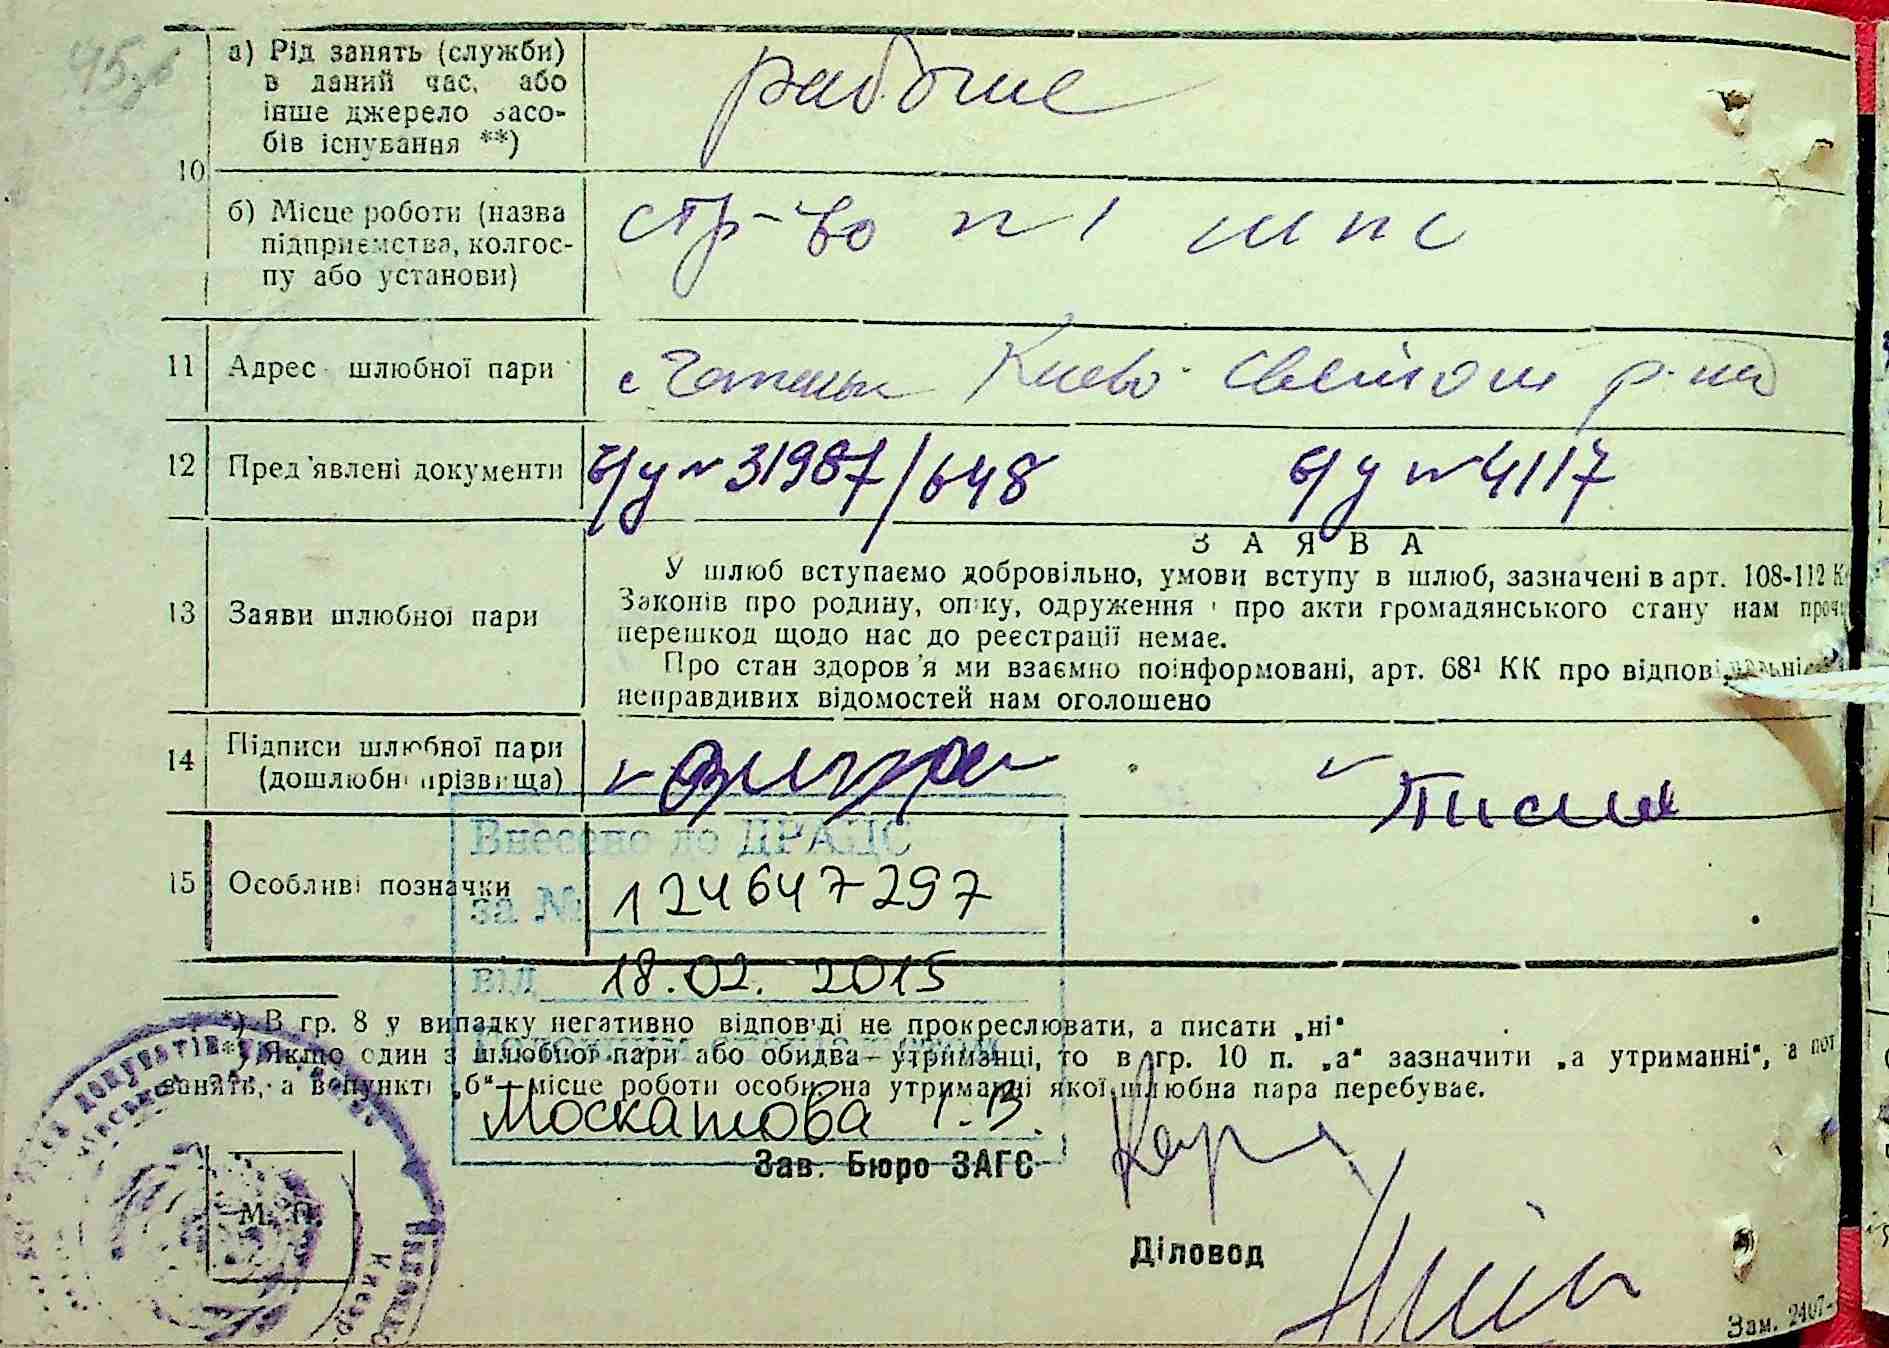 а) Рід занять (служби)
в даний час, або
інше джерело засо-
бів існування **)
рабочие
10
б) Місце роботи (назва
підприємства, колгос-
пу або установи)
стр-во n 1 мпс
11 Адрес шлюбної пари
с Чатаны Киево- р-на
12 Пред'явлені документи
б/у n 31987/648 б/у n 4117
З А Я В А
13 Заяви шлюбної пари
У шлюб вступаємо добровільно, умови вступу в шлюб, зазначені в арт. 108-112 К
Законів про родину, опіку, одруження і про акти громадянського стану нам проч
перешкод щодо нас до реєстрації немає.
Про стан здоров'я ми взаємно поінформовані, арт. 68¹ КК про
неправдивих відомостей нам оголошено
14 Підписи шлюбної пари
(дошлюбні прізвища)
15 Особливі позначки
Внесено до ДРАЦС
за № 124647297
від 18.02. 2015
*) В гр. 8 у випадку негативно відповіді не прокреслювати, а писати „ні"
**) Якщо один з шлюбної пари або обидва—утриманці, то в гр. 10 п. „а" зазначити „а утриманні", а пот
занять, а в пункті „б"—місце роботи особи, на утриманні якої шлюбна пара перебуває.
Москатова І. В.
Зав. Бюро ЗАГС
М. П.
Діловод
Зам. 2407-